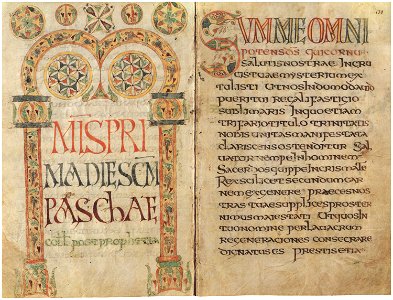 MIS PRI
MA DIE SCM
PASCHAE
coll post prophetia
132
SUMME OMNI
POTENS DS QUI CORNU
SALUTIS NOSTRAE IN CRU
CIS TUAE MYSTERIUM EX
TULISTI UT NOS IN DOMO DAUID
PUERI TUI REGALI FASTIGIO
SUBLIMARIS IN QUE TAM
TRIA NO TITULO TRINITATIS
NOBIS UNITAS MANIFESTATA
CLARISCENS OSTENDITUR SAL
UATOR NEMPE IN HOMINEM
SACERDOS QUIPPE IN CRISMALE
REX SCILICET SECUNDUM CAR
NEM EX GENERE PRAECES NOS
TRAS TUAE SUPPLICES PROSTER
NIMUS MAIESTATI UT QUOS IN
TUO NOMINE PER LAUACRUM
REGENERACIONIS CONSECRARE
DIGNATUS ES PRESTIS ETIA